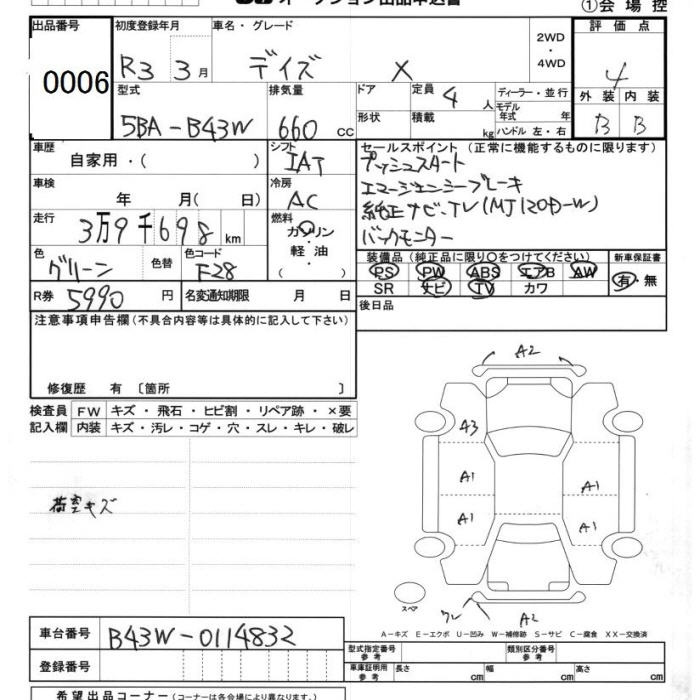 オークション出品申込書
①会場控
出品番号 初度登録年月 車名・グレード 2WD・4WD 評価点
0006 R3 3月 デイズ X 4
型式 排気量 ドア 定員 4人 ディーラー・並行 外装 内装
5BA-B43W 660cc 形状 積載 kg モデル年式 年 ハンドル 左・右 B B
車歴 自家用・( ) シフト IAT セールスポイント (正常に機能するものに限ります)
プッシュスタート
車検 年 月( 日) 冷房 AC エマージェンシーブレーキ
走行 3万9千698km 燃料 ガソリン・軽油・ 純正ナビ、TV(MJ120D-W)
バックモニター
色 グリーン 色替 色コード F28 装備品 (純正品に限り○をつけてください) 新車保証書
PS PW ABS エアB AW 有・無
SR ナビ TV カワ
R券 5990円 名変通知期限 月 日 後日品
注意事項申告欄(不具合内容等は具体的に記入して下さい)
修復歴 有 〔箇所 〕
検査員記入欄 FW キズ・飛石・ヒビ割・リペア跡・×要
内装 キズ・汚レ・コゲ・穴・スレ・キレ・破レ
荷室キズ
A2
A3
A1 A1
A1 A1
スペア
ワレ A2
A-キズ E-エクボ U-凹み W-補修跡 S-サビ C-腐食 XX-交換済
車台番号 B43W-0114832
型式指定番号 参考 類別区分番号 参考
登録番号 車庫証明用 参考 長さ cm 幅 cm 高さ cm
希望出品コーナー(コーナーは各会場により異なります。)